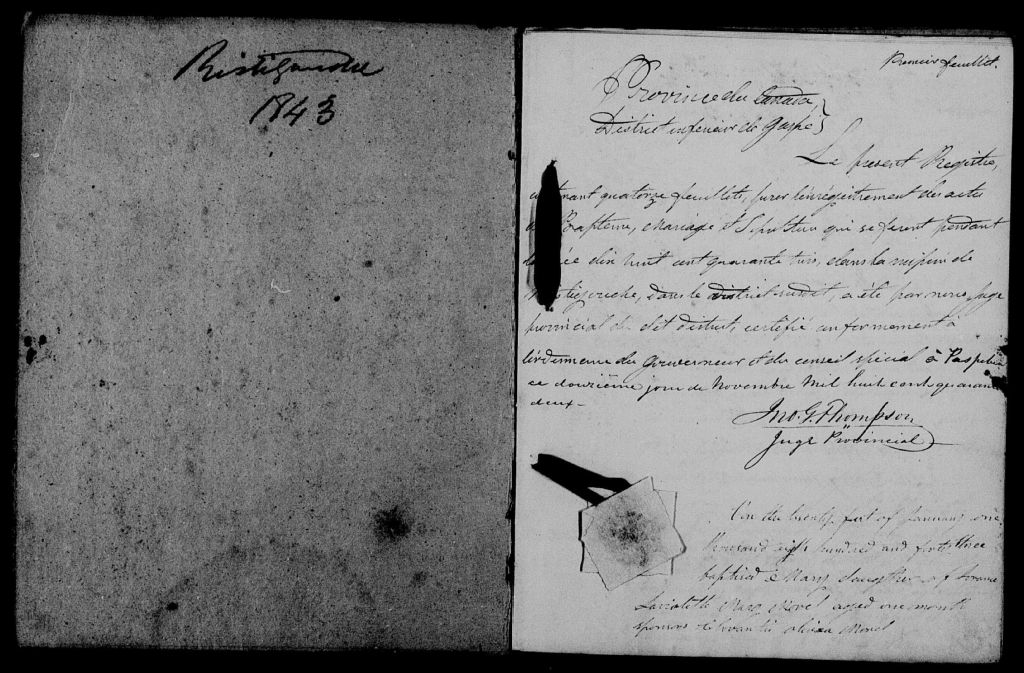 Ristigouche
1843
Premier feuillet.
Province du Canada,
District inférieur de Gaspé}
Le présent Registre,
contenant quatorze feuillets, pour l'enrégistrement des actes
de Baptême, Mariage et Sépulture qui se feront pendant
l'année dix huit cent quarante trois, dans la mission de
Ristigouche, dans le district susdit, a été par nous, Juge
provincial du dit district, certifié conformément à
l'ordonnance du Gouverneur et du conseil spécial à Paspébiac
ce douzième jour de Novembre Mil huit cent quarante
deux-
Jno. G. Thompson
Juge Provincial
On the twenty first of January one
thousand eight hundred and forty three
baptised Mary daughter of
Mary Morel aged one month
sponsors Olivier Morel